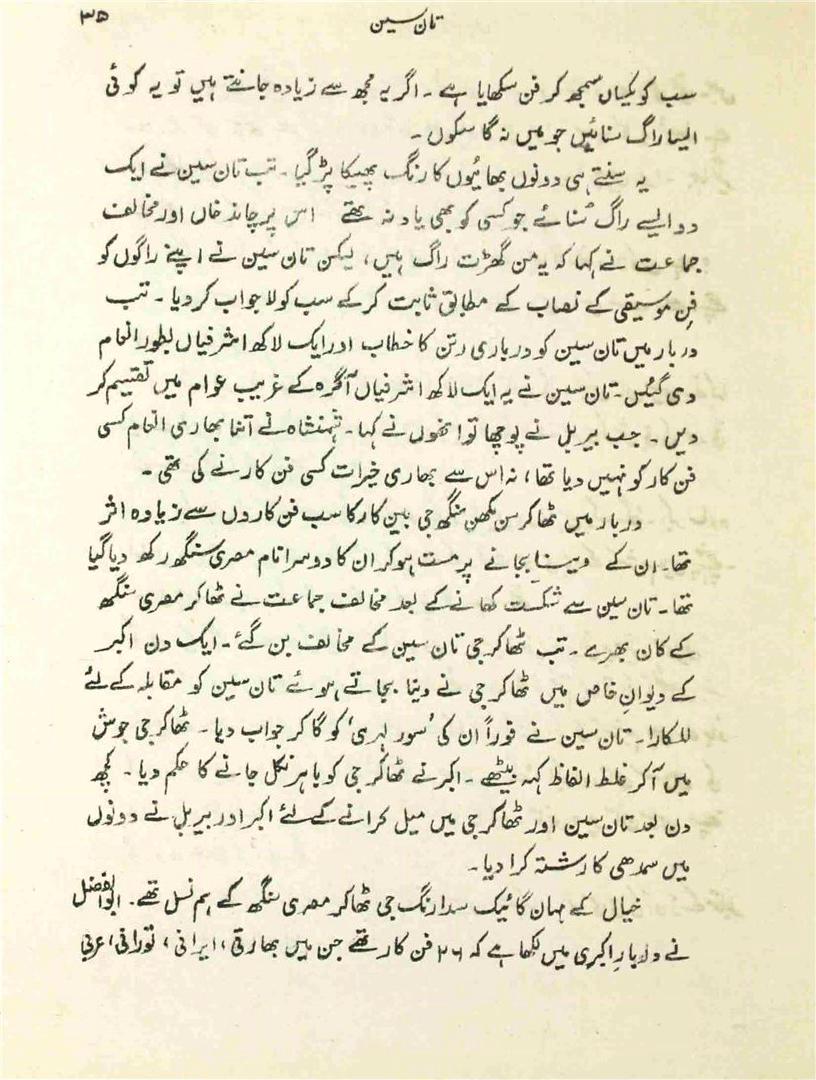 تان سین
۳۵
سب کو یکساں سمجھ کر فن سکھایا ہے ۔ اگر یہ مجھ سے زیادہ جانتے ہیں تو یہ کوئی
ایسا راگ سنائیں جو میں نہ گا سکوں ۔
یہ سنتے ہی دونوں بھائیوں کا رنگ پھیکا پڑ گیا ۔ تب تان سین نے ایک
دو ایسے راگ سُنائے جو کسی کو بھی یاد نہ تھے اس پر چاند خاں اور مخالف
جماعت نے کہا کہ یہ من گھڑت راگ ہیں، لیکن تان سین نے اپنے راگوں کو
فنِ موسیقی کے نصاب کے مطابق ثابت کرکے سب کو لاجواب کر دیا ۔ تب
دربار میں تان سین کو درباری رتن کا خطاب اور ایک لاکھ اشرفیاں بطور انعام
دی گئیں ۔ تان سین نے یہ ایک لاکھ اشرفیاں آگرہ کے غریب عوام میں تقسیم کر
دیں ۔ جب بیربل نے پوچھا تو انھوں نے کہا ۔ شہنشاہ نے اتنا بھاری انعام کسی
فن کار کو نہیں دیا تھا، نہ اس سے بھاری خیرات کسی فن کار نے کی تھی ۔
دربار میں ٹھاکر سن مکھن سنگھ جی بین کار کا سب فن کاروں سے زیادہ اثر
تھا۔ ان کے وینا بجانے پر مست ہوکر ان کا دوسرا نام مصری سنگھ رکھ دیا گیا
تھا ۔ تان سین سے شکست کھانے کے بعد مخالف جماعت نے ٹھاکر مصری سنگھ
کے کان بھرے ۔ تب ٹھاکر جی تان سین کے مخالف بن گئے ۔ ایک دن اکبر
کے دیوانِ خاص میں ٹھاکر جی نے وینا بجاتے ہوئے تان سین کو مقابلہ کے لئے
للکارا۔ تان سین نے فوراً ان کی 'سور لہری' کو گا کر جواب دیا ۔ ٹھاکر جی جوش
میں آکر غلط الفاظ کہہ بیٹھے ۔ اکبر نے ٹھاکر جی کو باہر نکل جانے کا حکم دیا ۔ کچھ
دن بعد تان سین اور ٹھاکر جی میں میل کرانے کے لئے اکبر اور بیربل نے دونوں
میں سمدھی کا رشتہ کرا دیا ۔
خیال کے مہان گائیک سدا رنگ جی ٹھاکر مصری سنگھ کے ہم نسل تھے ۔ ابوالفضل
نے دربارِ اکبری میں لکھا ہے کہ ۲۶ فن کار تھے جن میں بھارتی، ایرانی، تورانی، عربی